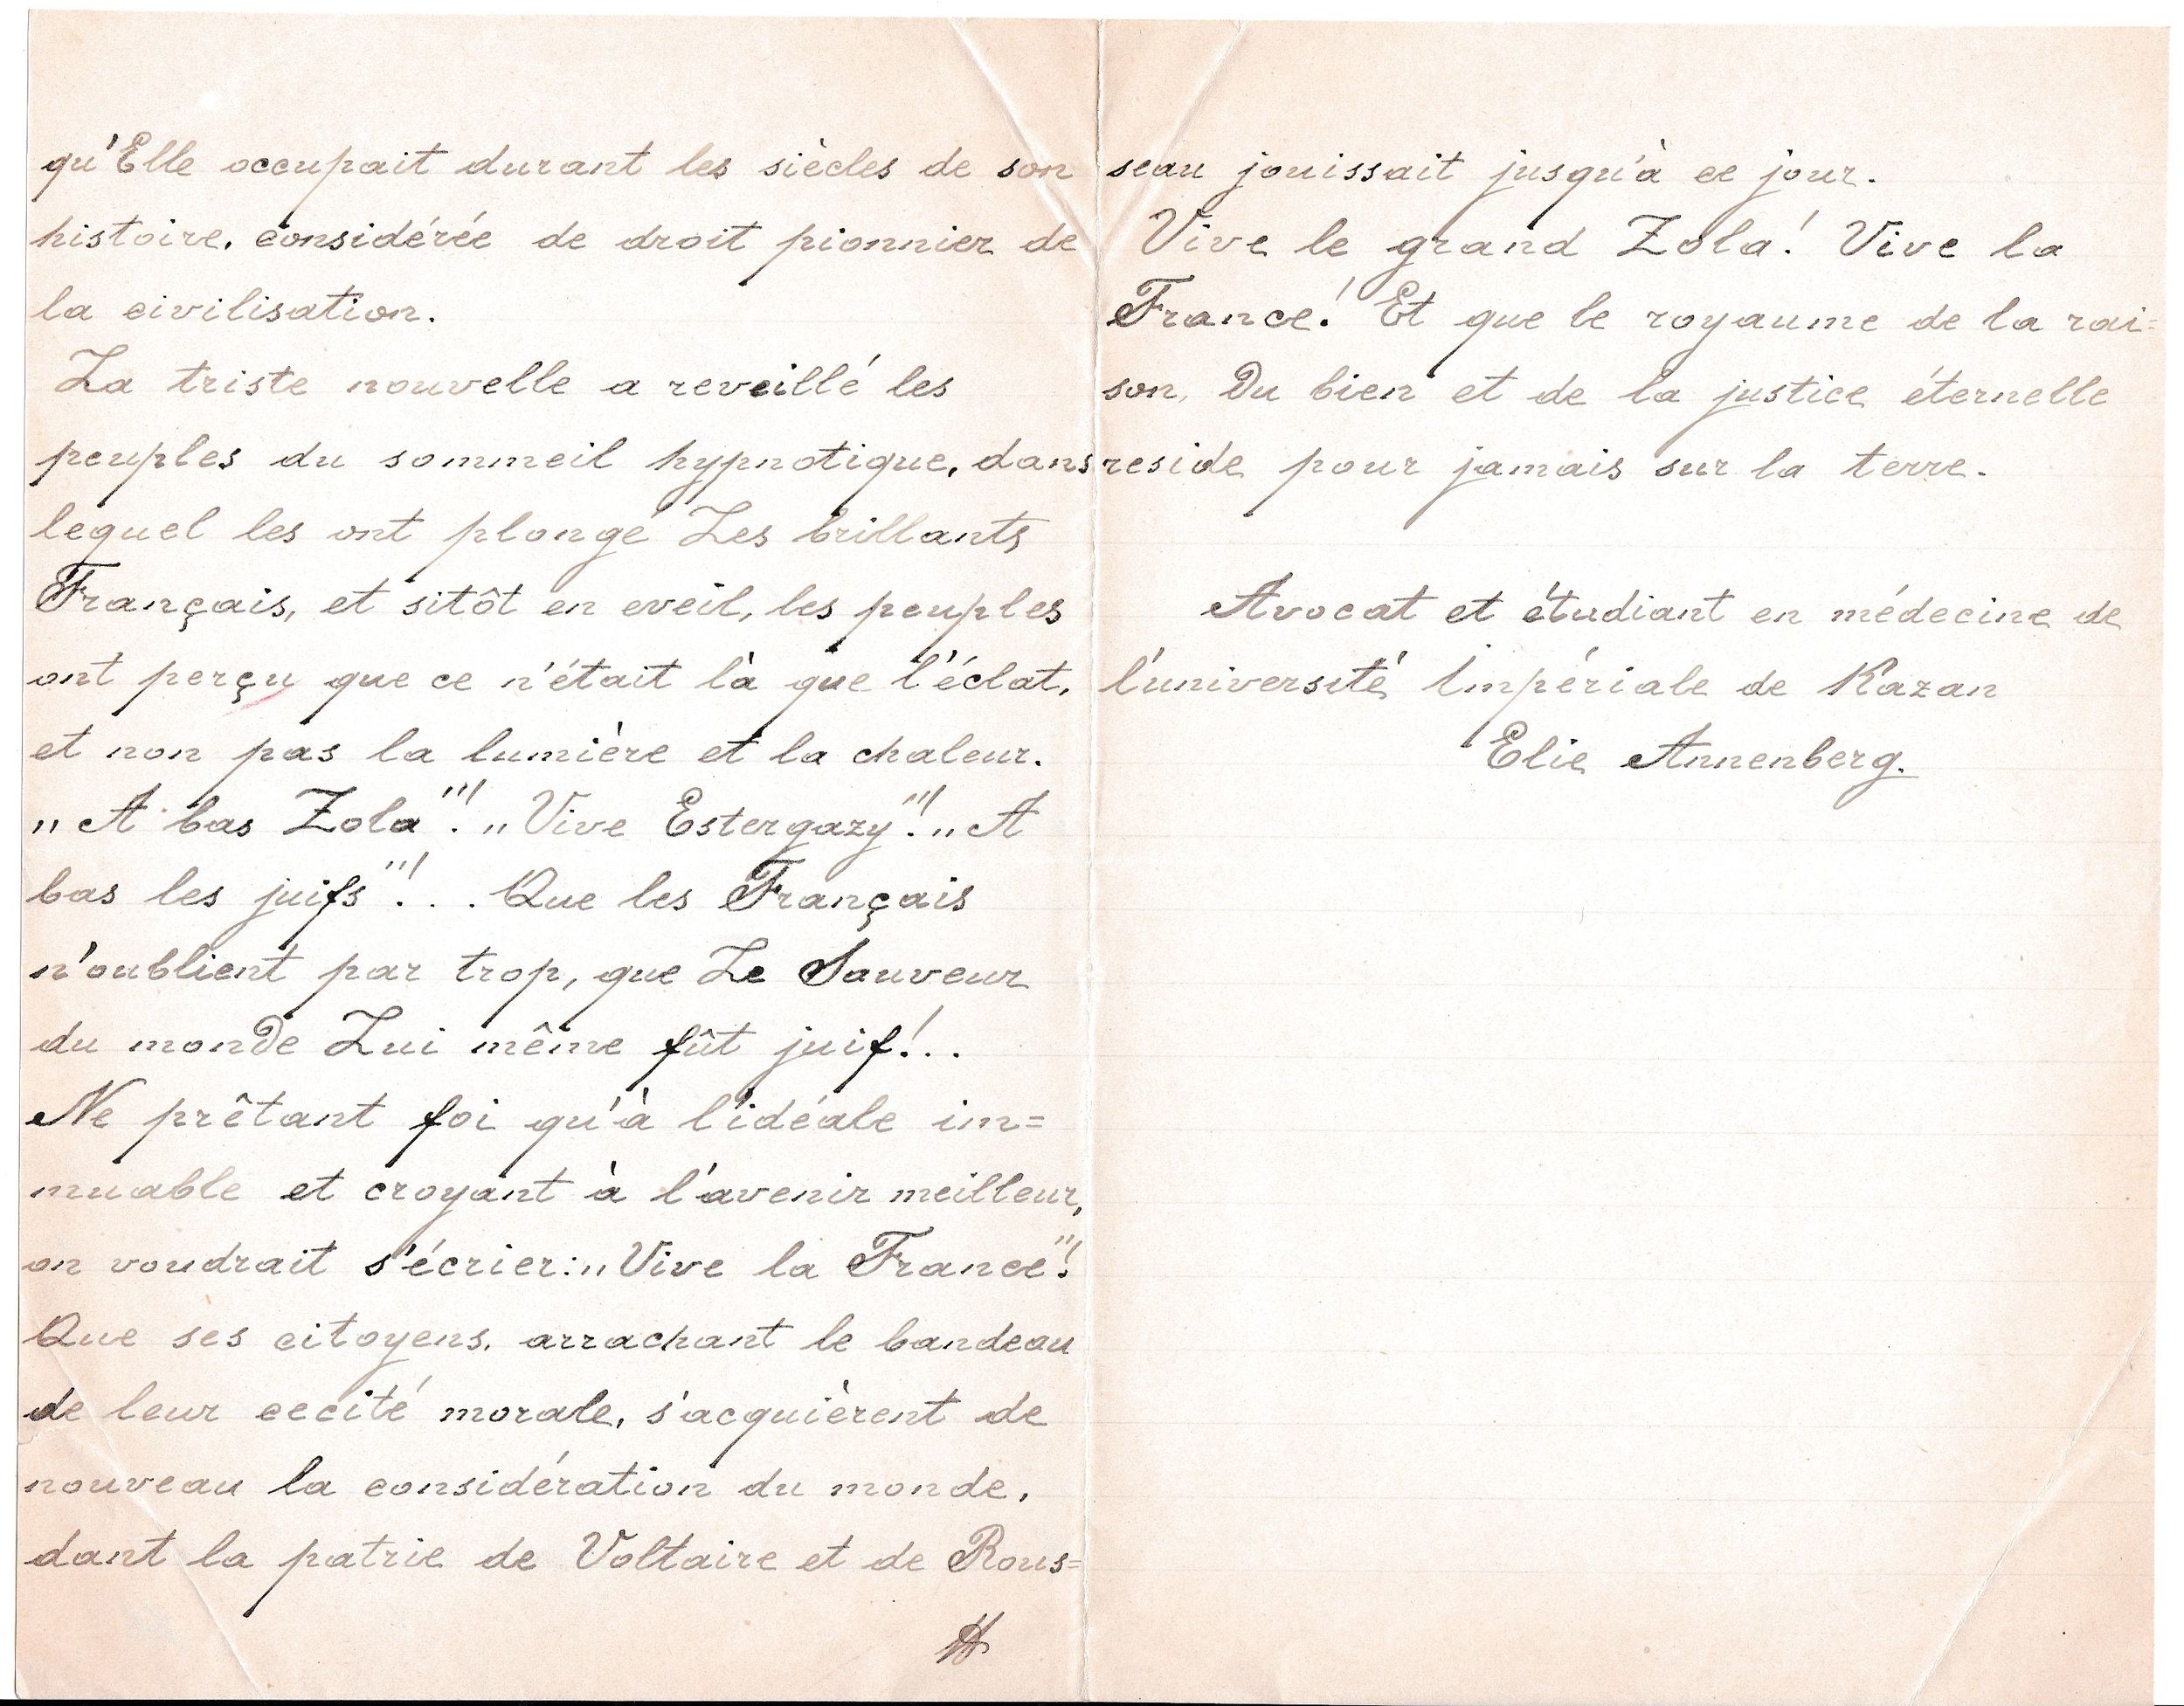 qu'Elle occupait durant les siècles de son
histoire, considérée de droit pionnier de
la civilisation.
La triste nouvelle a reveillé les
peuples du sommeil hypnotique, dans
lequel les ont plongé Les brillants
Français, et sitôt en eveil, les peuples
ont perçu que ce n'était là que l'éclat,
et non pas la lumière et la chaleur.
„A bas Zola"! „Vive Estergazy"! „A
bas les juifs"!... Que les Français
n'oublient par trop, que Le Sauveur
du monde Lui même fût juif!..
Ne prêtant foi qu'à l'idéale im=
muable et croyant à l'avenir meilleur,
on voudrait s'écrier: „Vive la France"!
Que ses citoyens, arrachant le bandeau
de leur cecité morale, s'acquièrent de
nouveau la considération du monde,
dont la patrie de Voltaire et de Rous=
seau jouissait jusqu'à ce jour.
Vive le grand Zola! Vive la
France! Et que le royaume de la rai=
son, Du bien et de la justice éternelle
reside pour jamais sur la terre.
Avocat et étudiant en médecine de
l'université Impériale de Kazan
Elie Annenberg.